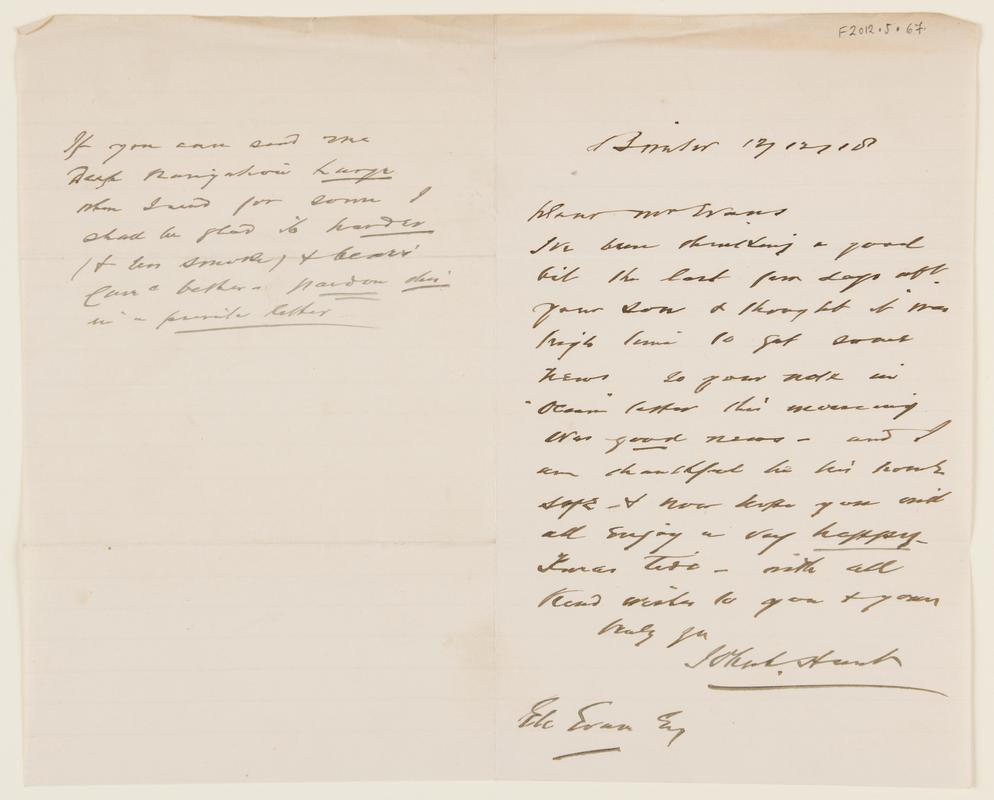 F2012.5.67.
17/12/18
Dear Mr Evans
I've been thinking a good
bit the last few days abt.
your son & thought it was
high time to get some
news so your note in
letter this morning
was good news - and I
am thankful he his home
safe - & now hope you will
all enjoy a very happy -
Xmas Tide - with all
kind wishes to you & yours
truly yrs
John Hunt
Evans Esq
If you can send me
Deep Navigation Large
when I send for some I
shall be glad its harder
(& less smoke) & bears
better - pardon this
in a private letter